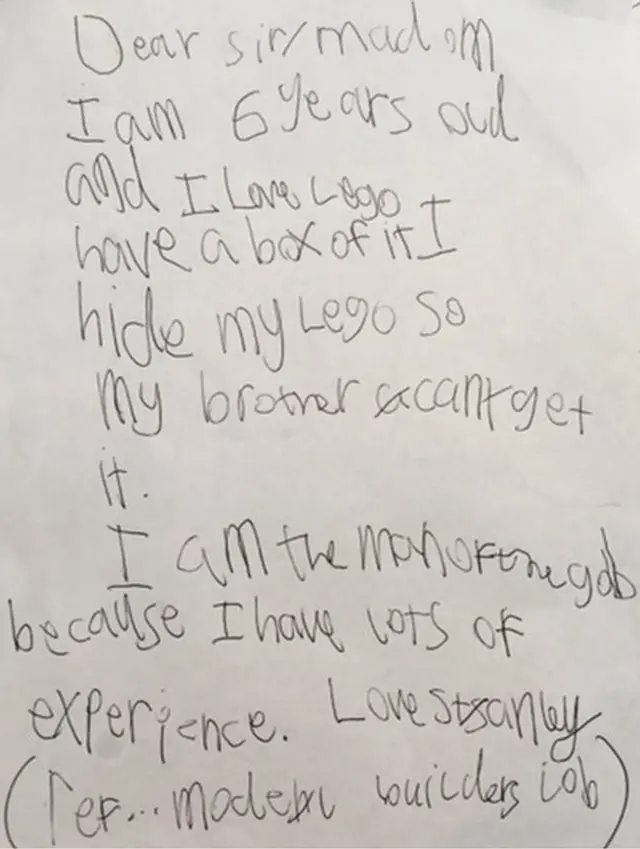 Dear sir/madam
I am 6 years oud
and I Love Lego
have a box of it I
hide my Lego so
my brother cant get
it.
I am the man for the gob
because I have lots of
experience. Love Stanley
(ref... model builders job)